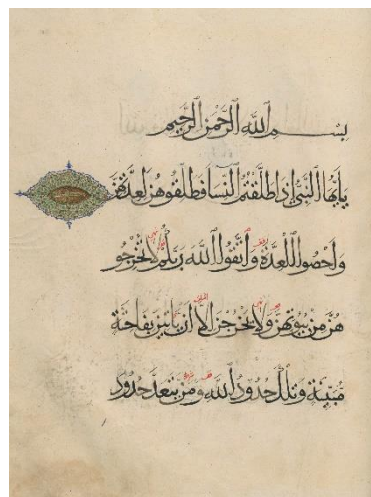 بسم الله الرحمن الرحيم
يايها النبي اذا طلقتم النسا فطلقوهن لعدتهن
واحصوا العدة واتقوا الله ربكم لا تخرجو
هن من بيوتهن ولا يخرجن الا ان ياتين بفاحشة
مبينة وتلك حدود الله ومن يتعد حدود